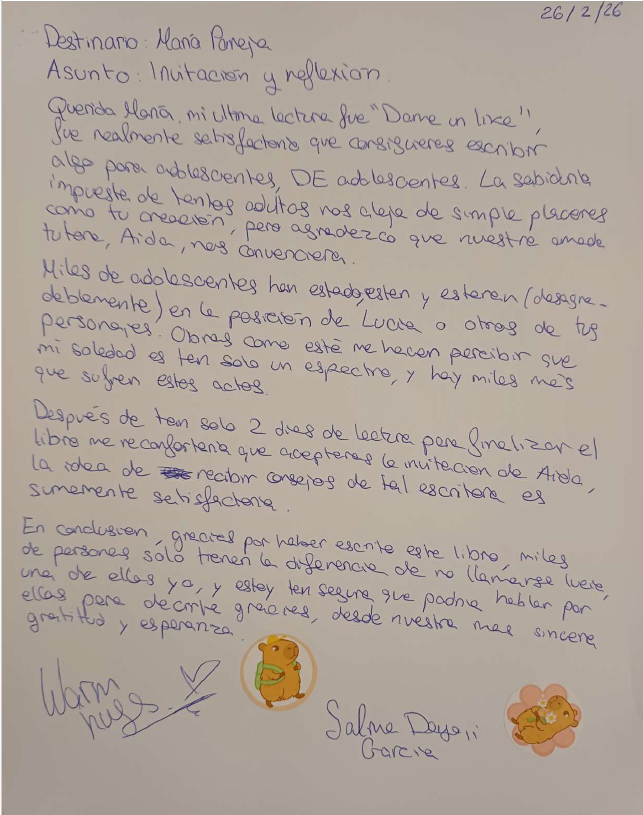 26/2/26
Destinario: María Pareja
Asunto: Invitación y reflexión.
Querida María, mi última lectura fue "Dame un like",
fue realmente satisfactorio que consiguieres escribir
algo para adolescentes, DE adolescentes. La sabiduría
impuesta de tantos adultos nos aleja de simple placeres
como tu creación, pero agradezco que nuestra amada
tutora, Aida, nos convenciera.
Miles de adolescentes han estado, esten y estaran (desagra-
dablemente) en la posición de Lucía o otros de tus
personajes. Obras como esté me hacen percibir que
mi soledad es tan solo un espectro, y hay miles más
que sufren estos actos.
Después de tan solo 2 dias de lectura para finalizar el
libro me reconfortaria que aceptaras la invitacion de Aida,
la idea de recibir consejos de tal escritora es
sumamente satisfactoria.
En conclusion, gracias por haber escrito este libro, miles
de personas sólo tienen la diferencia de no llamarse lucia,
una de ellas yo, y estoy tan segura que podria hablar por
ellas para decirte gracias, desde nuestra mas sincera
gratitud y esperanza.
Warm
hugs.
Salma
Garcia